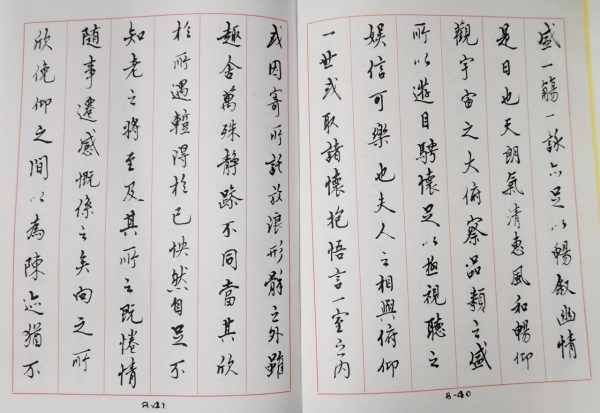 盛一觴一詠亦足以暢叙幽情
是日也天朗氣清惠風和暢仰
觀宇宙之大俯察品類之盛
所以遊目騁懷足以極視聽之
娛信可樂也夫人之相與俯仰
一世或取諸懷抱悟言一室之內
8-40
或因寄所託放浪形骸之外雖
趣舍萬殊靜躁不同當其欣
於所遇暫得於己快然自足不
知老之將至及其所之既惓情
隨事遷感慨係之矣向之所
欣俛仰之間以為陳迹猶不
8-41